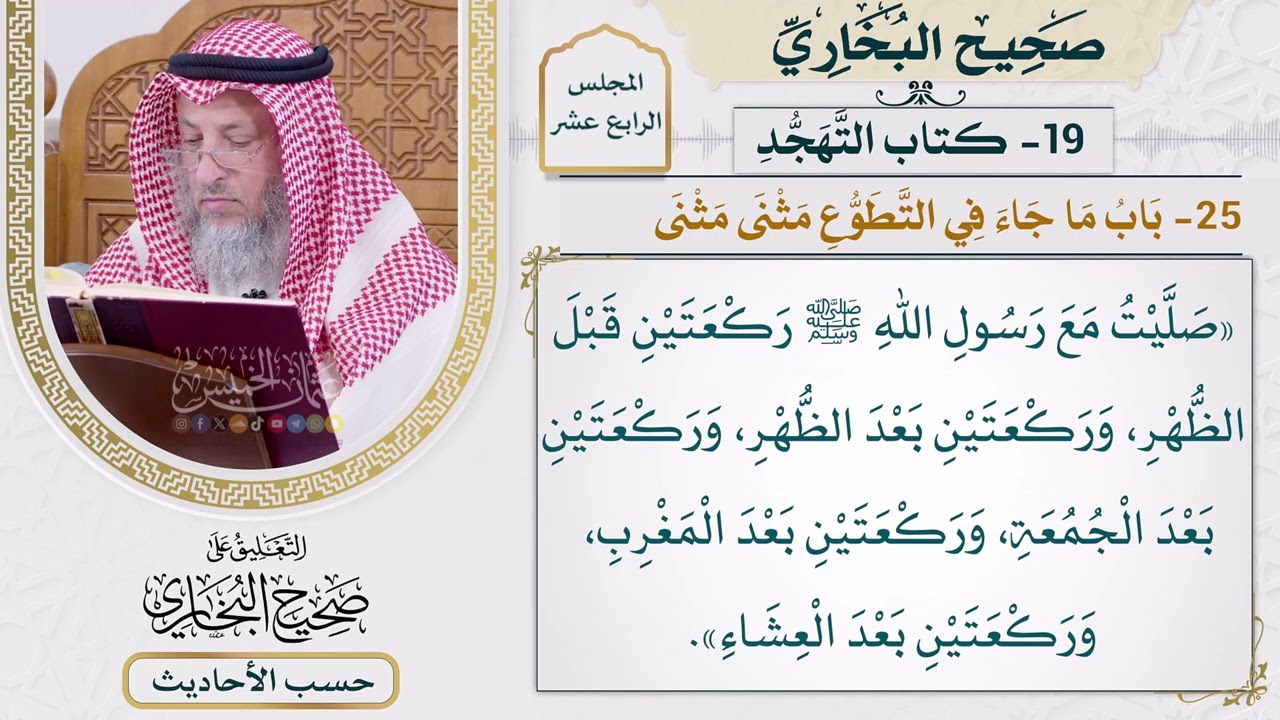 صَحِيح البُخَارِيِّ
المجلس
الرابع عشر
19- كتاب التَّهَجُّدِ
25- بَابُ مَا جَاءَ فِي التَّطَوُّعِ مَثْنَى مَثْنَى
«صَلَّيْتُ مَعَ رَسُولِ اللهِ ﷺ رَكْعَتَيْنِ قَبْلَ
الظُّهْرِ، وَرَكْعَتَيْنِ بَعْدَ الظُّهْرِ، وَرَكْعَتَيْنِ
بَعْدَ الْجُمُعَةِ، وَرَكْعَتَيْنِ بَعْدَ الْمَغْرِبِ،
وَرَكْعَتَيْنِ بَعْدَ الْعِشَاءِ».
عثمان الخميس
التَّعْلِيقُ عَلَى
صَحِيحُ البُخَارِي
حسب الأحاديث